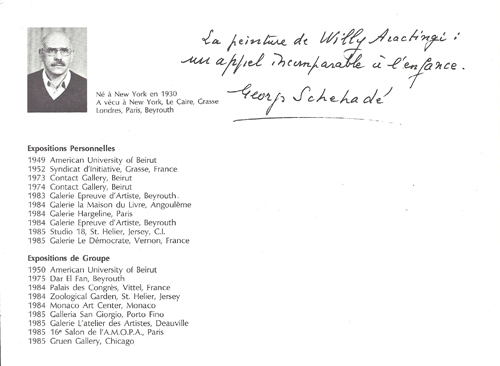 La peinture de Willy Aractingi :
un appel incomparable à l'enfance.
Georges Schehadé
Né à New York en 1930
A vécu à New York, Le Caire, Grasse
Londres, Paris, Beyrouth
Expositions Personnelles
1949 American University of Beirut
1952 Syndicat d'Initiative, Grasse, France
1973 Contact Gallery, Beirut
1974 Contact Gallery, Beirut
1983 Galerie Epreuve d'Artiste, Beyrouth
1984 Galerie la Maison du Livre, Angoulême
1984 Galerie Hargeline, Paris
1984 Galerie Epreuve d'Artiste, Beyrouth
1985 Studio 18, St. Helier, Jersey, C.I.
1985 Galerie Le Démocrate, Vernon, France
Expositions de Groupe
1950 American University of Beirut
1975 Dar El Fan, Beyrouth
1984 Palais des Congrès, Vittel, France
1984 Zoological Garden, St. Helier, Jersey
1984 Monaco Art Center, Monaco
1985 Galleria San Giorgio, Porto Fino
1985 Galerie L'atelier des Artistes, Deauville
1985 16e Salon de l'A.M.O.P.A., Paris
1985 Gruen Gallery, Chicago